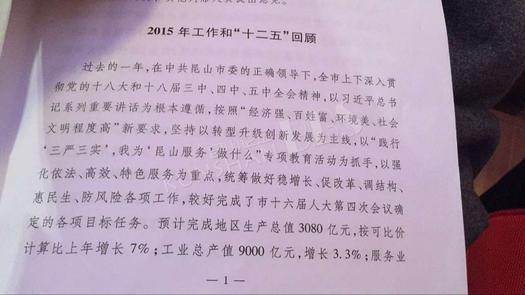 2015 年工作和“十二五”回顾
过去的一年，在中共昆山市委的正确领导下，全市上下深入贯
彻党的十八大和十八届三中、四中、五中全会精神，以习近平总书
记系列重要讲话为根本遵循，按照“经济强、百姓富、环境美、社会
文明程度高”新要求，坚持以转型升级创新发展为主线，以“践行
‘三严三实’，我为‘昆山服务’做什么”专项教育活动为抓手，以强
化依法、高效、特色服务为重点，统筹做好稳增长、促改革、调结构、
惠民生、防风险各项工作，较好完成了市十六届人大第四次会议确
定的各项目标任务。预计完成地区生产总值 3080 亿元，按可比价
计算比上年增长 7%；工业总产值 9000 亿元，增长 3.3%；服务业
— 1 —